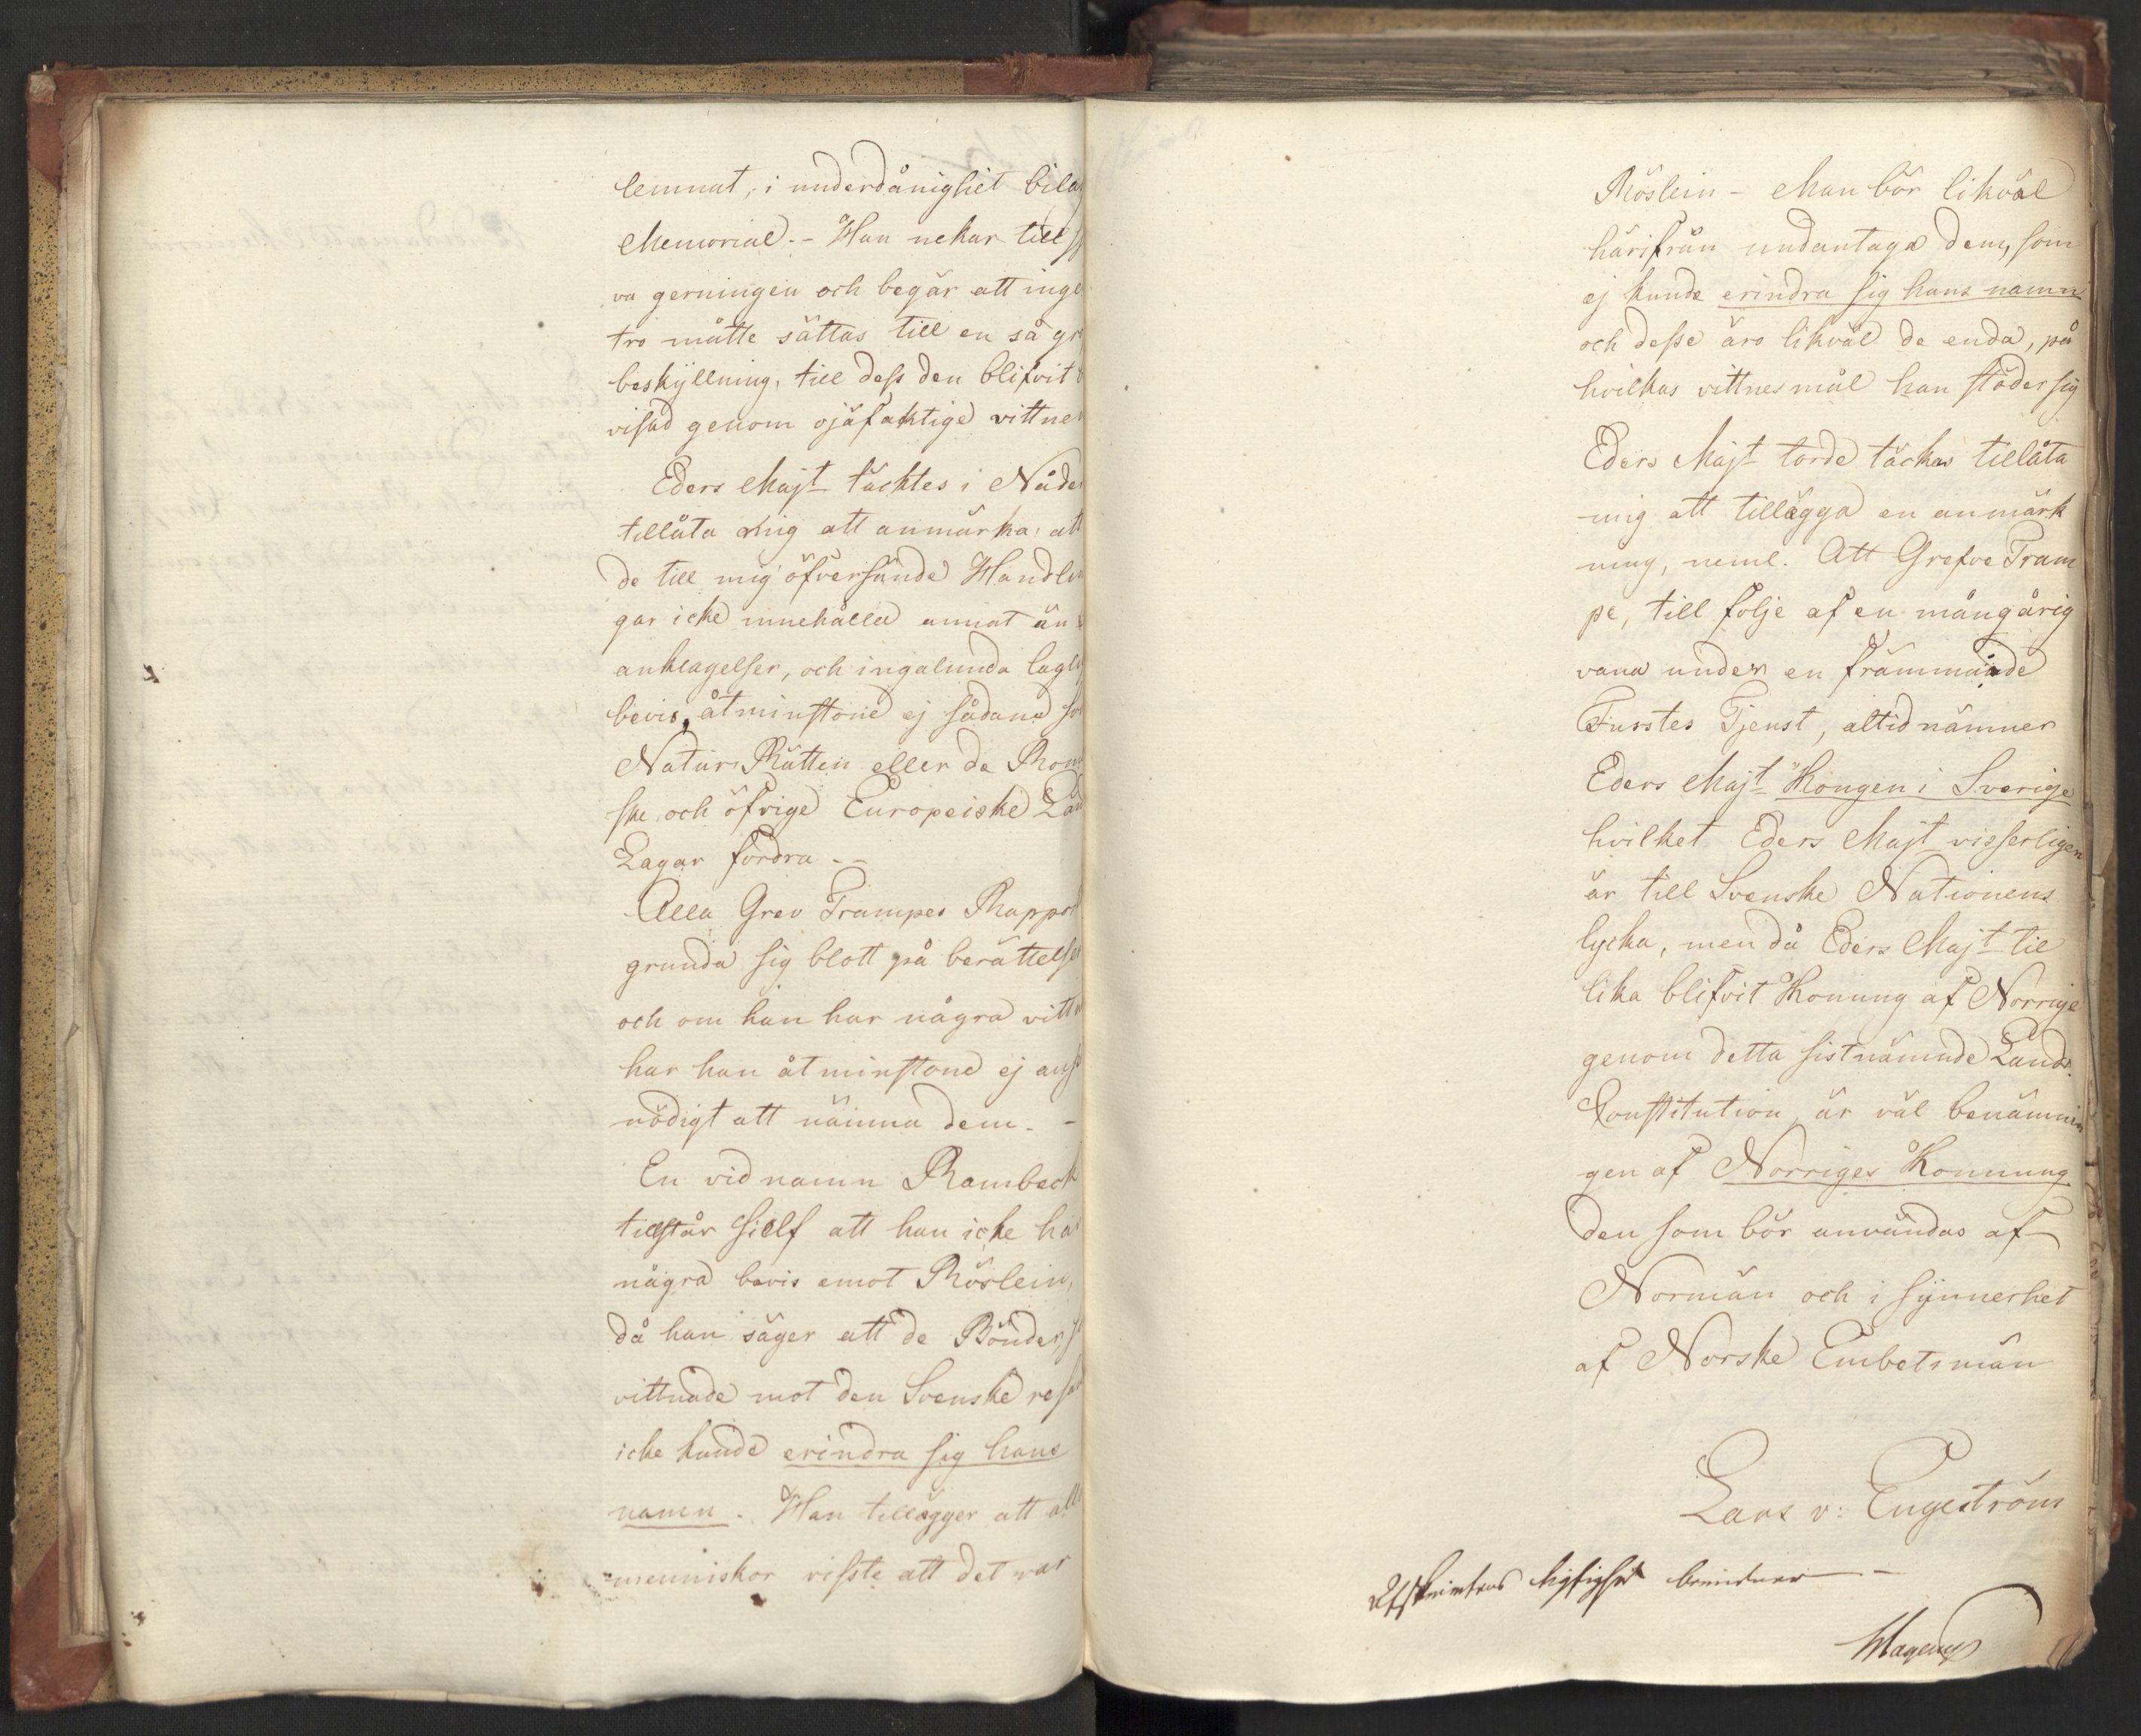 lemnat, i underdånighet bila
Memorial. - Han nekar till s
va gerningen och begär att inge
tro måtte sättas till en så gr
beskyllning, till dess den blifvit b
visad genom ojäfaktige vittnen
Eders Majt täcktes i Nåder
tillåta mig att anmärka, att
de till mig öfversände Handlin
gar icke innehålla annat än
anklagelser, och ingalunda lagl
bevis, åtminstone ej sådane so
Naturs Rätten eller de Rom
ske och öfrige Europeiske Land
Lagar fordra - -
Alla Grev Trampes Rappor
grunda sig blott på berättelser
och om han har några vittn
har han åtminstone ej ans
nödigt att nämna dem. -
En vid namn Rambeck
tillstår sielf att han icke har
några bevis emot Röslein,
då han säger att de Bönder, s
vittnade mot den Svenske resan
icke kunde erindra sig hans
namn. Han tillägger att alla
menniskor visste att det var
Röslein - Man bör likväl
härifrån undantaga dem, som
ej kunde erindra sig hans namn
och desse äro likväl de enda, på
hvilkas vittnesmål han stöder sig
Eders Majt torde täckas tillåta
mig att tillägga en anmärk
ning, neml. Att Grefve Tram
pe, till följe af en mångårig
vana under en främmande
Furstes Tjenst, altid nämner
Eders Majt "Kongen i Sverige
hvilket Eders Majt visserligen
är till Svenske Nationens
lycka, men då Eders Majt til
lika blifvit Konung af Norrige
genom detta sistnämnde Lands
Constitution, är väl benämnin
gen af Norriges Konung
den som bör användas af
Normän och i synnerhet
af Norske Embetsmän
Lars v: Engeström
Afskriftens rigtighed bevidner